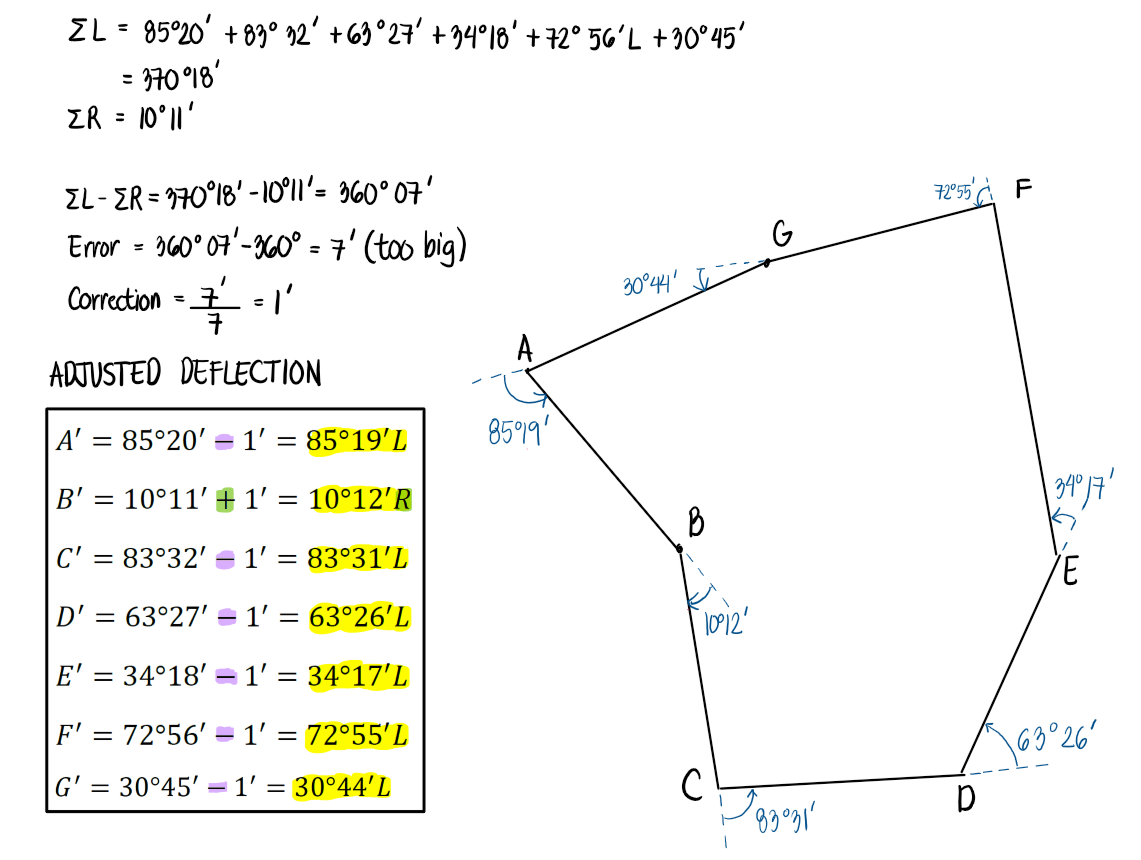 ΣL = 85°20' + 83° 32' + 63°27' + 34°18' + 72° 56'L + 30°45'
= 370°18'
ΣR = 10°11'
ΣL - ΣR = 370°18' - 10°11' = 360° 07'
Error = 360° 07' - 360° = 7' (too big)
Correction = 7'/7 = 1'
ADJUSTED DEFLECTION
A′ = 85°20′ − 1′ = 85°19′L
B′ = 10°11′ + 1′ = 10°12′R
C′ = 83°32′ − 1′ = 83°31′L
D′ = 63°27′ − 1′ = 63°26′L
E′ = 34°18′ − 1′ = 34°17′L
F′ = 72°56′ − 1′ = 72°55′L
G′ = 30°45′ − 1′ = 30°44′L
72°55'
F
G
30°44'
A
85°19'
34°17'
B
E
10°12'
63°26'
C
D
83°31'